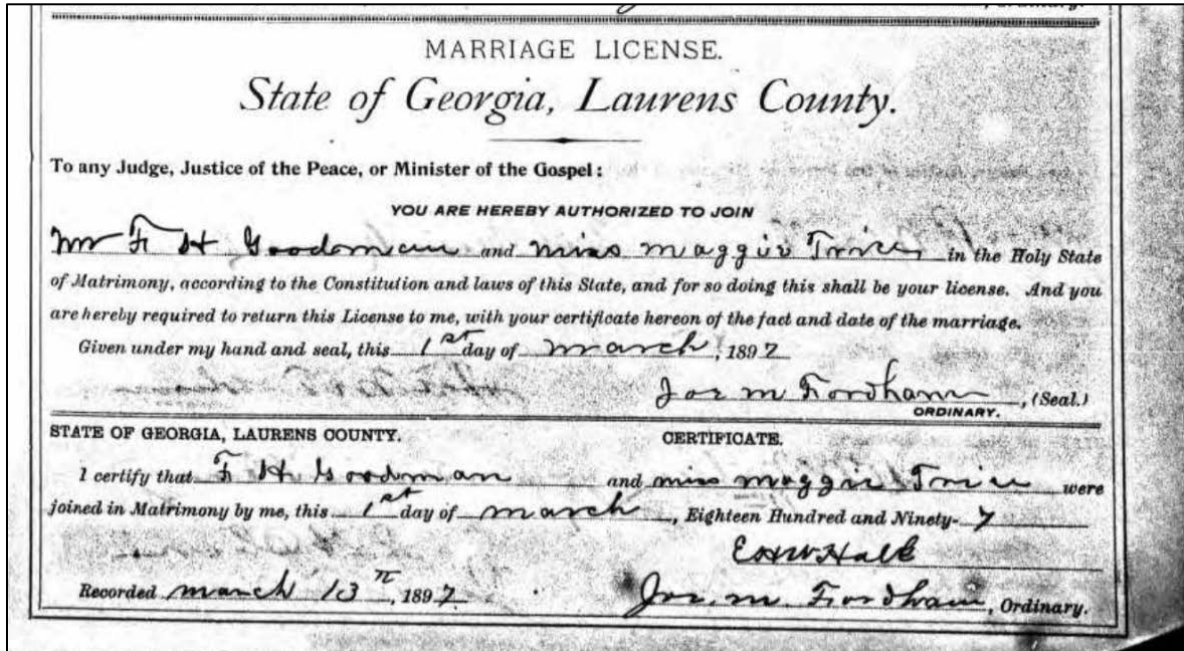 , Ordinary.
MARRIAGE LICENSE.
State of Georgia, Laurens County.
To any Judge, Justice of the Peace, or Minister of the Gospel:
YOU ARE HEREBY AUTHORIZED TO JOIN
Mr F. H Goodman and Miss Maggie Trice in the Holy State
of Matrimony, according to the Constitution and laws of this State, and for so doing this shall be your license. And you
are hereby required to return this License to me, with your certificate hereon of the fact and date of the marriage.
Given under my hand and seal, this 1st day of March, 1897
Jos M Fordham, (Seal.)
ORDINARY.
STATE OF GEORGIA, LAURENS COUNTY. CERTIFICATE.
I certify that F. H. Goodman and Miss Maggie Trice were
joined in Matrimony by me, this 1st day of March, Eighteen Hundred and Ninety-7
Recorded March 13th, 1897 Jos. M. Fordham, Ordinary.